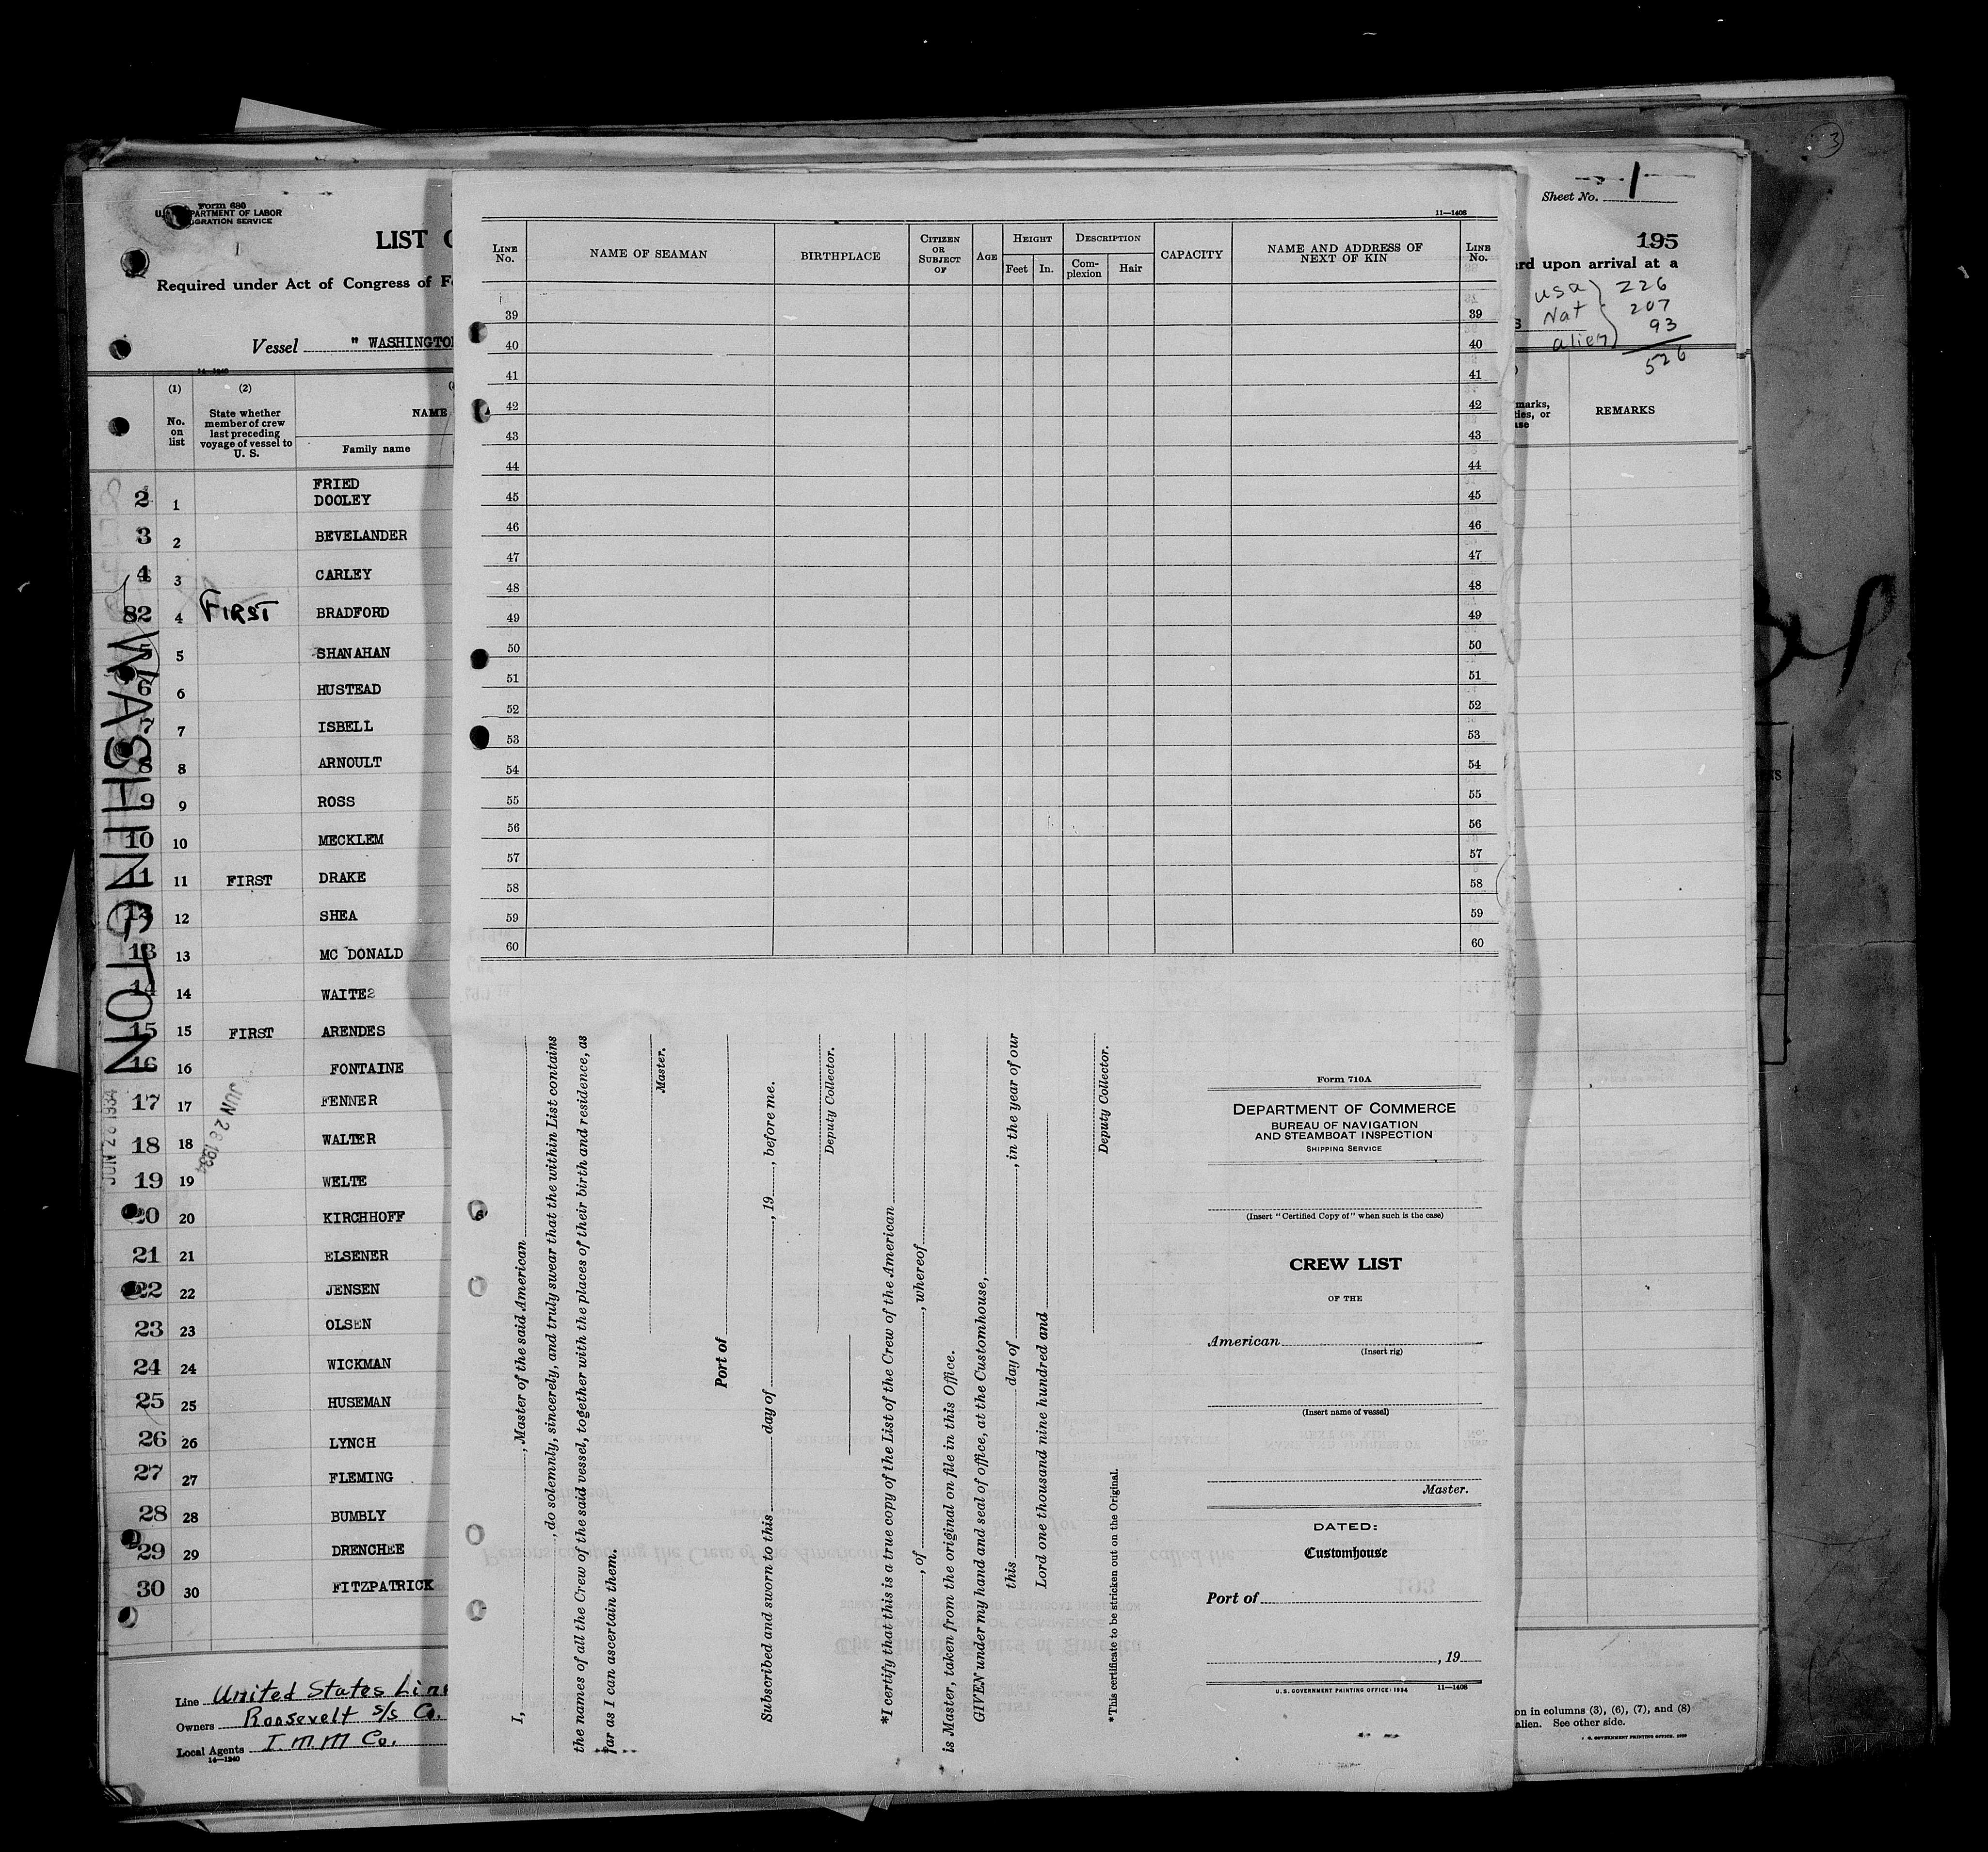 Form 680
U. S. DEPARTMENT OF LABOR
IMMIGRATION SERVICE
LIST
Required under Act of Congress of
Vessel " WASHINGTON
14—1240
(1)
No. on list
(2)
State whether member of crew last preceding voyage of vessel to U. S.
NAME
Family name
FRIED
2 1 DOOLEY
3 2 BEVELANDER
4 3 CARLEY
82 4 FIRST BRADFORD
5 5 SHANAHAN
6 6 HUSTEAD
7 7 ISBELL
8 8 ARNOULT
9 9 ROSS
10 10 MECKLEM
11 11 FIRST DRAKE
12 12 SHEA
13 13 MC DONALD
14 14 WAITE
15 15 FIRST ARENDES
16 16 FONTAINE
17 17 FENNER
18 18 WALTER
19 19 WELTE
20 20 KIRCHHOFF
21 21 ELSENER
22 22 JENSEN
23 23 OLSEN
24 24 WICKMAN
25 25 HUSEMAN
26 26 LYNCH
27 27 FLEMING
28 28 BUMBLY
29 29 DRENCHEE
30 30 FITZPATRICK
WASHINGTON
JUN 26 1934
JUN 26 1934
Line United States Line
Owners Roosevelt s/s Co.
Local Agents I.M.M Co.
14—1240
11—1408
LINE No.
NAME OF SEAMAN
BIRTHPLACE
CITIZEN OR SUBJECT OF
AGE
HEIGHT
Feet
In.
DESCRIPTION
Complexion
Hair
CAPACITY
NAME AND ADDRESS OF NEXT OF KIN
LINE No.
39 39
40 40
41 41
42 42
43 43
44 44
45 45
46 46
47 47
48 48
49 49
50 50
51 51
52 52
53 53
54 54
55 55
56 56
57 57
58 58
59 59
60 60
I, , Master of the said American
, do solemnly, sincerely, and truly swear that the within List contains
the names of all the Crew of the said vessel, together with the places of their birth and residence, as
far as I can ascertain them.
Master.
Port of
Subscribed and sworn to this day of , 19 , before me.
Deputy Collector.
*I certify that this is a true copy of the List of the Crew of the American
, of , whereof
is Master, taken from the original on file in this Office.
GIVEN under my hand and seal of office, at the Customhouse,
this day of , in the year of our
Lord one thousand nine hundred and
Deputy Collector.
*This certificate to be stricken out on the Original.
Form 710A
DEPARTMENT OF COMMERCE
BUREAU OF NAVIGATION
AND STEAMBOAT INSPECTION
SHIPPING SERVICE
(Insert "Certified Copy of" when such is the case)
CREW LIST
OF THE
American
(Insert rig)
(Insert name of vessel)
Master.
DATED:
Customhouse
Port of
, 19
U. S. GOVERNMENT PRINTING OFFICE: 1934 11—1408
Sheet No. 1
195
upon arrival at a
usa 226
Nat 207
alien 93
526
marks,
ties, or
REMARKS
on in columns (3), (6), (7), and (8)
alien. See other side.
GOVERNMENT PRINTING OFFICE
3